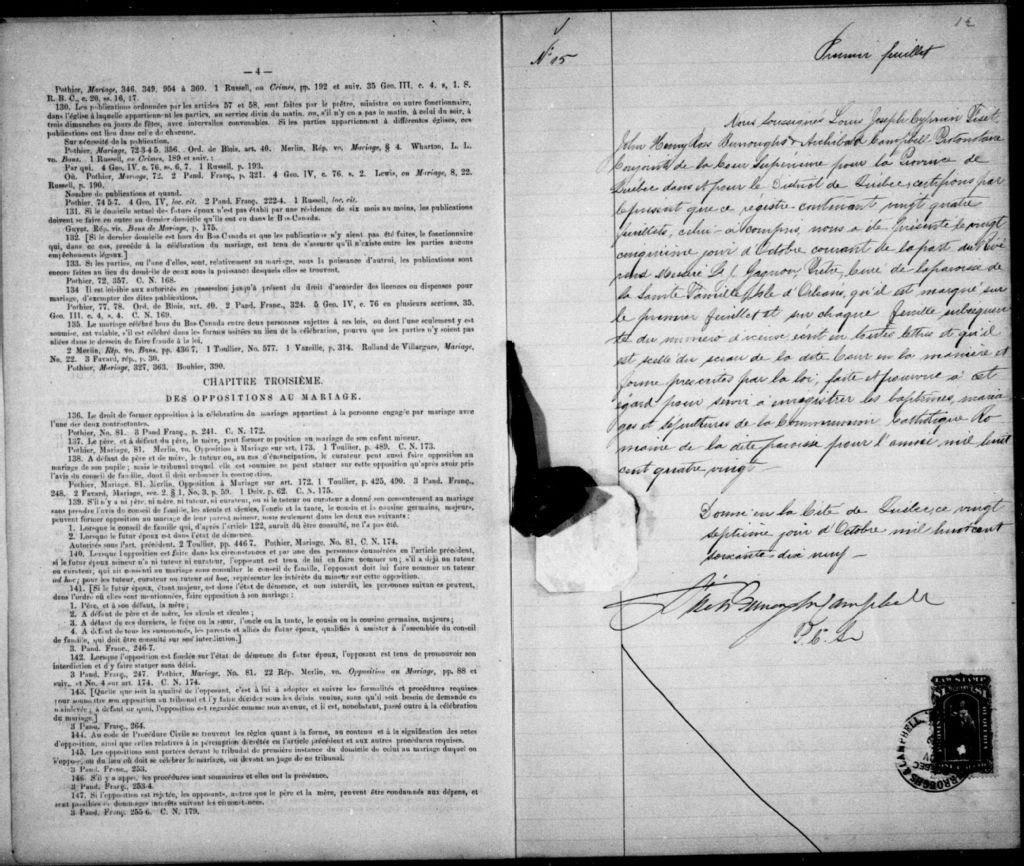 — 4 —
Pothier, Mariage, 346, 349, 954 à 360. 1 Russell, on Crimes, pp. 192 et suiv. 35 Geo. III, c. 4, s, 1. S.
R. B. C., c. 20, ss. 16, 17.
130. Les publications ordonnées par les articles 57 et 58, sont faites par le prêtre, ministre ou autre fonctionnaire,
dans l'église à laquelle appartiennent les parties, au service divin du matin, ou, s'il n'y en a pas le matin, à celui du soir, à
trois dimanches ou jours de fêtes, avec intervalles convenables. Si les parties appartiennent à différentes églises, ces
publications ont lieu dans celle de chacune.
Sur nécessité de la publication.
Pothier, Mariage, 72-3-4-5, 356. Ord. de Blois, art. 40. Merlin, Rép. vo. Mariage, § 4. Wharton, L. L.
vo. Bans. 1 Russell, on Crimes, 189 et suiv. :
Par qui. 4 Geo. IV, c. 76, ss. 6, 7. 1 Russell, p. 193.
Où. Pothier, Mariage, 72. 2 Pand. Franç., p. 321. 4 Geo. IV, c. 76, s. 2. Lewis, on Mariage, 8, 22.
Russell, p. 190.
Nombre de publications et quand.
Pothier, 74 5-7. 4 Geo, IV, loc. cit. 2 Pand. Franç. 222-4. 1 Russell, loc. cit.
131. Si le domicile actuel des futurs époux n'est pas établi par une résidence de six mois au moins, les publications
doivent se faire en outre au dernier domicile qu'ils ont eu dans le Bas-Canada.
Guyot, Rép. vis. Bans de Mariage, p. 175.
132. [Si le dernier domicile est hors du Bas-Canada et que les publications n'y aient pas été faites, le fonctionnaire
qui, dans ce cas, procède à la célébration du mariage, est tenu de s'assurer qu'il n'existe entre les parties aucuns
empêchements légaux.]
133. Si les parties, ou l'une d'elles, sont, relativement au mariage, sous la puissance d'autrui, les publications sont
encore faites au lieu du domicile de ceux sous la puissance desquels elles se trouvent.
Pothier, 72, 357. C. N. 168.
134 Il est loisible aux autorités en possession jusqu'à présent du droit d'accorder des licences ou dispenses pour
mariage, d'exempter des dites publications.
Pothier, 77, 78. Ord. de Blois, art. 40. 2 Pand. Franç., 324. 5 Geo. IV, c. 76 en plusieurs sections, 35.
Geo. III, c. 4, s. 4. C. N. 169.
135. Le mariage célébré hors du Bas Canada entre deux personnes sujettes à ses lois, ou dont l'une seulement y est
soumise, est valable, s'il est célébré dans les formes usitées au lieu de la célébration, pourvu que les parties n'y soient pas
allées dans le dessein de faire fraude à la loi.
2 Merlin, Rép. vo. Bans, pp. 436 7. 1 Toullier, No. 577. 1 Vazeille, p. 314. Rolland de Villargues, Mariage,
No. 22. 3 Favard, rép., p. 30.
Pothier, Mariage, 327, 363. Bouhier, 390.
CHAPITRE TROISIÈME.
DES OPPOSITIONS AU MARIAGE.
136. Le droit de former opposition à la célébration du mariage appartient à la personne engagée par mariage avec
l'une des deux contractantes.
Pothier, No. 81. 3 Pand Franç., p. 241. C. N. 172.
137. Le père, et à défaut du père, la mère, peut former opposition au mariage de son enfant mineur.
Pothier, Mariage, 81. Merlin, vo. Opposition à Mariage sur art. 173. 1 Toullier, p. 489. C. N. 173.
138. A défaut de père et de mère, le tuteur ou, au cas d'émancipation, le curateur peut aussi faire opposition au
mariage de son pupille ; mais le tribunal auquel elle est soumise ne peut statuer sur cette opposition qu'après avoir pris
l'avis du conseil de famille, dont il doit ordonner la convocation.
Pothier, Mariage, 81. Merlin, Opposition à Mariage sur art. 172. 1 Toullier, p. 425, 490. 3 Pand. Franç.,
248. 2 Favard, Mariage, sec. 2, § 1, No. 3, p. 59. 1 Delv. p. 62. C. N. 175.
139. S'il n'y a ni père, ni mère, ni tuteur, ni curateur, ou si le tuteur ou curateur a donné son consentement au mariage
sans prendre l'avis du conseil de famille, les aïeuls et aïeules, l'oncle et la tante, le cousin et la cousine germains, majeurs,
peuvent former opposition au mariage de leur parent mineur, mais seulement dans les deux cas suivants :
1. Lorsque le conseil de famille qui, d'après l'article 122, aurait dû être consulté, ne l'a pas été.
2. Lorsque le futur époux est dans l'état de démence.
Autorités sous l'art. précédent. 2 Toullier, pp. 446 7. Pothier, Mariage, No. 81, C. N. 174.
140. Lorsque l'opposition est faite dans les circonstances et par une des personnes énumérées en l'article précédent,
si le futur époux mineur n'a ni tuteur ni curateur, l'opposant est tenu de lui en faire nommer un ; s'il a déjà un tuteur
ou curateur, qui ait consenti au mariage sans consulter le conseil de famille, l'opposant doit lui faire nommer un tuteur
ad hoc ; pour les tuteur, curateur ou tuteur ad hoc, représenter les intérêts du mineur sur cette opposition.
141. [Si le futur époux, étant majeur, est dans l'état de démence, et non interdit, les personnes suivantes peuvent,
dans l'ordre où elles sont mentionnées, faire opposition à son mariage :
1. Père, et à son défaut, la mère ;
2. A défaut de père et de mère, les aïeuls et aïeules ;
3. A défaut de ces derniers, le frère ou la sœur, l'oncle ou la tante, le cousin ou la cousine germains, majeurs ;
4. A défaut de tous les susnommés, les parents et alliés du futur époux, qualifiés à assister à l'assemblée du conseil
de famille, qui doit être consulté sur son interdiction.]
3. Pand. Franç., 246-7.
142. Lorsque l'opposition est fondée sur l'état de démence du futur époux, l'opposant est tenu de promouvoir son
interdiction et d'y faire statuer sans délai.
3 Pand. Franç., 247. Pothier, Mariage, No. 81. 22 Rép. Merlin, vo. Opposition au Mariage, pp. 88 et
suiv., et No. 4 sur art. 174. C. N. 174.
143. [Quelle que soit la qualité de l'opposant, c'est à lui à adopter et suivre les formalités et procédures requises
pour soumettre son opposition au tribunal et l'y faire décider sous les délais voulus, sans qu'il soit besoin de demande en
mainlevée ; à défaut de quoi, l'opposition est regardée comme non avenue, et il est, nonobstant, passé outre à la célébration
du mariage.]
3 Pand. Franç., 264.
144. Au code de Procédure Civile se trouvent les règles quant à la forme, au contenu et à la signification des actes
d'opposition, ainsi que celles relatives à la péremption décrétée en l'article précédent et aux autres procédures requises.
145. Les oppositions sont portées devant le tribunal de première instance du domicile de celui au mariage duquel on
s'oppose, ou du lieu où doit se célébrer le mariage, ou devant un juge de ce tribunal.
3 Pand. Franc., 253.
146. S'il y a appel, les procédures sont sommaires et elles ont la préséance.
3 Pand. Franç., 253-4.
147. Si l'opposition est rejetée, les opposants, autres que le père et la mère, peuvent être condamnés aux dépens, et
sont passibles de dommages intérêts suivant les circonstances.
3 Pand. Franç. 255 6. C. N. 179.
No 15
Premier feuillet
Nous soussignés Louis Joseph Cyprien Fiset,
John Henry Ross Burroughs & Archibald Campbell Protonotaire
Conjoint de la Cour Supérieure pour la Province de
Québec dans et pour le District de Québec, certifions par
le présent que ce registre contenant vingt quatre
feuillets, celui-ci compris, nous a été présenté le vingt
cinquième jour d'Octobre courant de la part du Révé
rend Messire Gagnon, Prêtre, Curé de la paroisse de
la Sainte Famille, Isle d'Orléans, qu'il est marqué sur
le premier feuillet et sur chaque feuille subséquen
te du numéro écrit en toutes lettres et qu'il
est scellé du sceau de la dite Cour en la manière et
forme prescrites par la loi, faite et pourvue à cet
égard pour servir à enregistrer les baptêmes, maria
ges et sépultures de la Communion Catholique Ro
maine de la dite paroisse pour l'année mil huit
cent quatre vingt.
Donné en la Cité de Québec, ce vingt
septième jour d'Octobre mil huit cent
soixante dix neuf —
Fiset Burroughs Campbell
P. C. S.
LAW STAMP
BURROUGHS & CAMPBELL